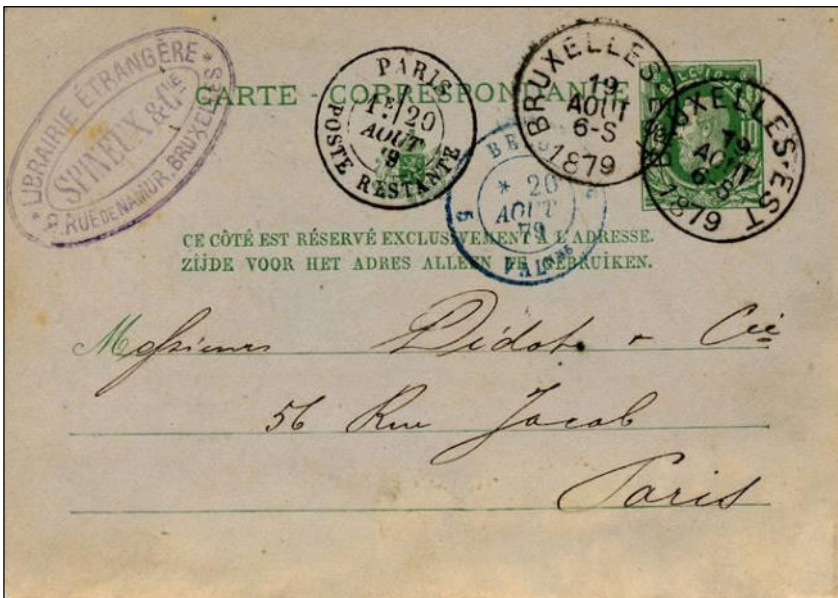 LIBRAIRIE ÉTRANGÈRE
SPINEUX & Cie
RUE DE NAMUR, BRUXELLES
CARTE - CORRESPONDANCE
PARIS
1E/20
AOUT
79
POSTE RESTANTE
BRUXELLES
19
AOUT
6-S
1879
BELGIQUE
BRUXELLES-EST
19
AOUT
6-S
1879
5
* 20
AOUT
79
5
CE CÔTÉ EST RÉSERVÉ EXCLUSIVEMENT À L'ADRESSE.
ZIJDE VOOR HET ADRES ALLEEN TE GEBRUIKEN.
Messieurs Didot & Cie
56 Rue Jacob
Paris